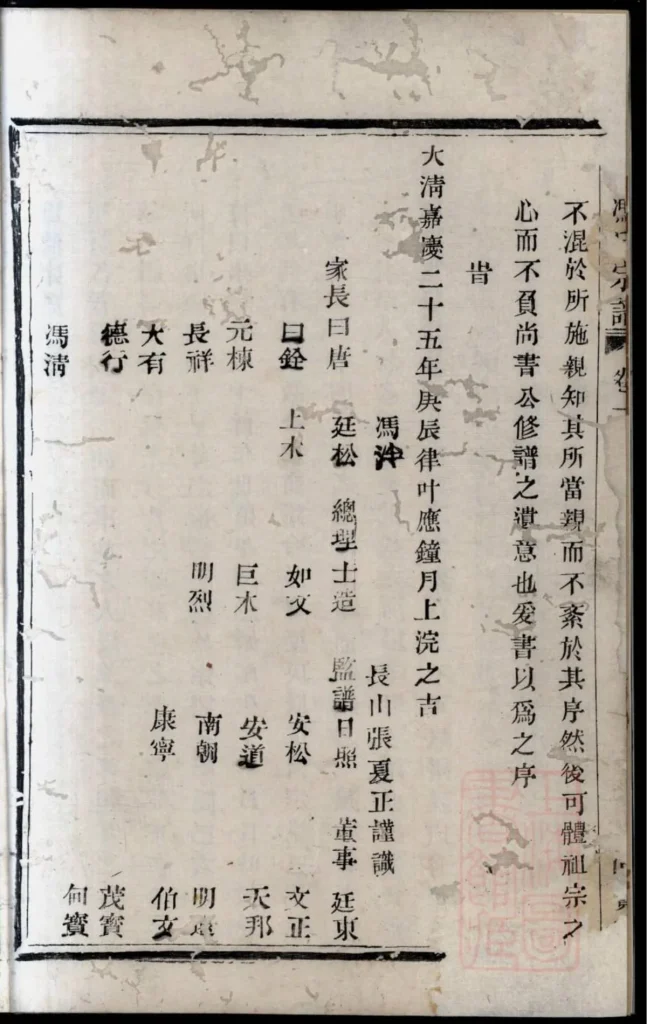 不混於所施親知其所當親而不紊於其序然後可體祖宗之
心而不負尚書公修譜之遺意也爰書以為之序
旹
大清嘉慶二十五年庚辰律叶應鐘月上浣之吉
長山張夏正謹識
馮
家長曰唐 廷松 總理士造 監譜日照 董事 廷東
曰銓 上木 如文 安松 文正
元棟 巨木 安道 天邦
長祥 明烈 南朝 明
大有 康寧 伯玄
德行 茂寶
馮淸 何寶